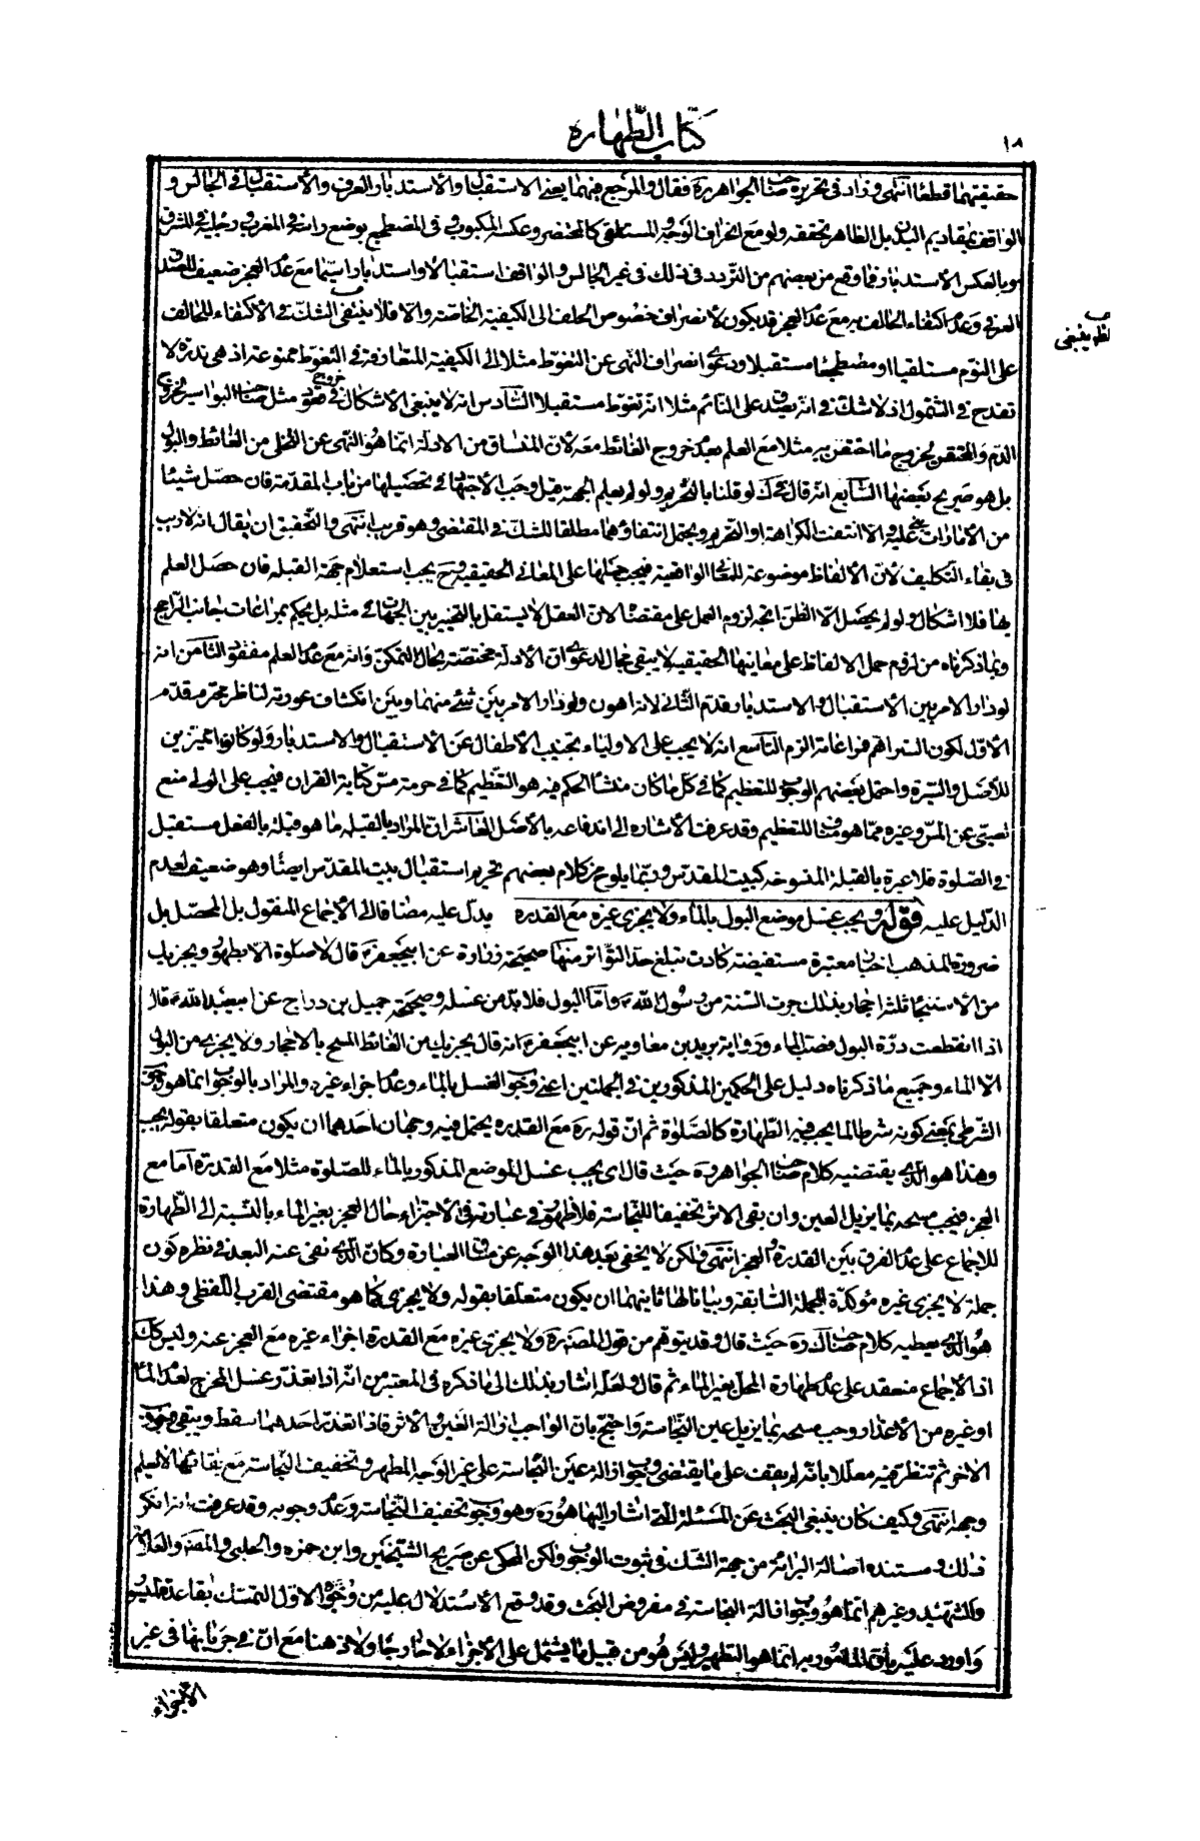 ١٨
كتاب الطهارة
حقيقتهما قطعا انتهى وزاد في تحريره صاحب الجواهر ره فقال والمرجع فيهما يعنى الاستقبال والاستدبار العرف والاستقبال في الجالس و
الواقف بمقاديم البدن بل الظاهر تحققه ولو مع انحراف الوجه والمستلقى كالمحتضر وعكسه المكبوب وفى المضطجع بوضع راسه في المغرب ورجليه في المشرق
وبالعكس الاستدبار فما وقع من بعضهم من التردد في ذلك في غير الجالس والواقف استقبالا واستدبارا سيما مع عدم العجز ضعيف للصدق
العرفى وعدم اكتفاء الحالف به مع عدم العجز قد يكون لانصراف خصوص الحلف الى الكيفية الخاصة والا فلا ينبغى الشك في الاكتفاء للحالف
لا ينبغى
على النوم مستلقيا او مضطجعا مستقبلا ودعوى انصراف النهى عن التغوط مثلا الى الكيفية المتعارفة في التغوط ممنوعة اذ هي ندرة لا
تقدح في الشمول اذ لا شك في انه يصدق على النائم مثلا انه تغوط مستقبلا السادس انه لا ينبغى الاشكال في خروج مثل صاحب البواسير لخروج
الدم والمحتقن لخروج ما احتقن به مثلا مع العلم بعدم خروج الغائط معه لان المنساق من الادلة انما هو النهى عن التخلى من الغائط والبول
بل هو صريح بعضها السابع انه قال في ك لو قلنا بالتحريم ولو لم يعلم الجهة قيل وجب الاجتهاد في تحصيلها من باب المقدمة فان حصل شيئا
من الامارات بنى عليه والا انتفت الكراهة او التحريم ويحتمل انتفاؤهما مطلقا للشك في المقتضى وهو قريب انتهى والتحقيق ان يقال انه لا ريب
في بقاء التكليف لان الالفاظ موضوعة للمعانى الواقعية فيجب حملها على المعانى الحقيقية وح يجب استعلام جهة القبلة فان حصل العلم
بها فلا اشكال ولو لم يحصل الا الظن اتجه لزوم العمل على مقتضاه لان العقل لا يستقل بالتخيير بين الجهات في مثله بل يحكم بمراعات جانب الراجح
وبما ذكرناه من لزوم حمل الالفاظ على معانيها الحقيقية لا يبقى مجال لدعوى ان الادلة مختصة بحال التمكن وانه مع عدم العلم مفقود الثامن انه
لو دار الامر بين الاستقبال والاستدبار قدم الثانى لانه اهون ولو دار الامر بين شئ منهما وبين انكشاف عورته لناظر محترم قدم
الاول لكون الستر اهم فمراعاته الزم التاسع انه لا يجب على الاولياء تجنيب الاطفال عن الاستقبال والاستدبار ولو كانوا مميزين
للاصل والسيرة واحتمل بعضهم الوجوب للتعظيم كما في كل ما كان منشأ الحكم فيه هو التعظيم كما في حرمة مس كتابة القران فيجب على الولى منع
الصبى عن المس وغيره مما هو مناف للتعظيم وقد عرفت الاشارة الى اندفاعه بالاصل العاشر ان المراد بالقبلة ما هو قبلة بالفعل مستقبل
في الصلوة فلا عبرة بالقبلة المنسوخة كبيت المقدس وربما يلوح من كلام بعضهم تحريم استقبال بيت المقدس ايضا وهو ضعيف لعدم
الدليل عليه قوله ويجب غسل موضع البول بالماء ولا يجزى غيره مع القدرة يدل عليه مضافا الى الاجماع المنقول بل المحصل بل
ضرورة المذهب اخبار معتبرة مستفيضة كادت تبلغ حد التواتر منها صحيحة زرارة عن ابيجعفر ع قال لا صلوة الا بطهور ويجزيك
من الاستنجاء ثلثة احجار بذلك جرت السنة من رسول الله ص واما البول فلا بد من غسله وصحيحة جميل بن دراج عن ابيعبد الله ع قال
اذا انقطعت درة البول فصب الماء ورواية بريد بن معاوية عن ابيجعفر ع انه قال يجزيك من الغائط المسح بالاحجار ولا يجزى من البول
الا الماء وجميع ما ذكرناه دليل على الحكمين المذكورين في الجملتين اعنى وجوب الغسل بالماء وعدم اجزاء غيره والمراد بالوجوب انما هو الوجوب
الشرطى بمعنى كونه شرطا لما يجب فيه الطهارة كالصلوة ثم ان قوله ره مع القدرة يحتمل فيه وجهان احدهما ان يكون متعلقا بقوله يجب
وهذا هو الذي يقتضيه كلام صاحب الجواهر ره حيث قال اى يجب غسل الموضع المذكور بالماء للصلوة مثلا مع القدرة اما مع
العجز فيجب مسحه بما يزيل العين وان بقى الاثر تخفيفا للنجاسة فلا ظهور في عبارته في الاجتزاء حال العجز بغير الماء بالنسبة الى الطهارة
للاجماع على عدم الفرق بين القدرة والعجز انتهى ولكن لا يخفى بعد هذا الوجه عن مساق العبارة وكأن الذي نفى عنه البعد في نظره كون
جملة لا يجزى غيره مؤكدة للجملة السابقة وبيانا لها ثانيهما ان يكون متعلقا بقوله ولا يجزى كما هو مقتضى القرب اللفظى وهذا
هو الذي يعطيه كلام صاحب ك ره حيث قال وقد يتوهم من قول المصنف ره ولا يجزى غيره مع القدرة اجزاء غيره مع العجز عنه وليس كك
اذ الاجماع منعقد على عدم طهارة المحل بغير الماء ثم قال ولعله اشار بذلك الى ما ذكره في المعتبر من انه اذا تعذر غسل المخرج لعدم الماء
او غيره من الاعذار وجب مسحه بما يزيل عين النجاسة واحتج بان الواجب ازالة العين والاثر فاذا تعذر احدهما سقط ويبقى وجوب
الاخر ثم تنظر فيه معللا بانه لم يقف على ما يقتضى وجوب ازالة عين النجاسة على غير الوجه المطهر وتخفيف النجاسة مع بقائها لا نعلم
وجهه انتهى وكيف كان ينبغى البحث عن المسئلة التى اشار اليها هو ره وهو وجوب تخفيف النجاسة وعدم وجوبه وقد عرفت انه انكر
ذلك ومستنده اصالة البرائة من جهة الشك في ثبوت الوجوب ولكن المحكى عن صريح الشيخين وابن حمزه والحلبى والمصنف والعلامة
والشهيد وغيرهم انما هو وجوب ازالة النجاسة في مفروض البحث وقد وقع الاستدلال عليه من وجوه الاول التمسك بقاعدة الميسور
واورد عليه بان المأمور به انما هو التطهير وليس هو من قبيل ما يشتمل على الاجزاء لا خارجا ولا ذهنا مع ان في جريانها في غير
الاجزاء